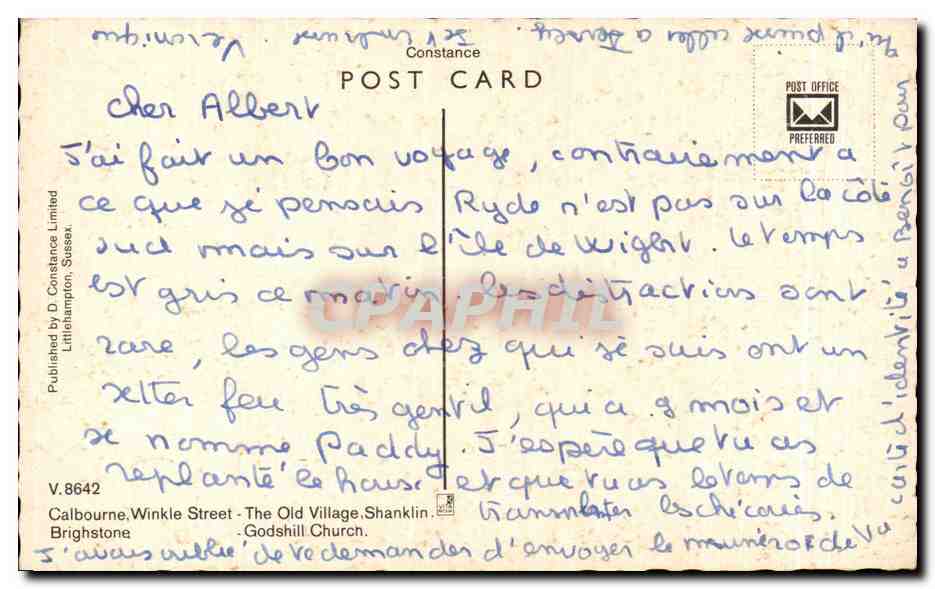 Constance
POST CARD
POST OFFICE
PREFERRED
cher Albert
J'ai fait un bon voyage, contrairement a
ce que je pensais Ryde n'est pas sur la côte
sud mais sur l'île de Wight. le temps
est gris ce matin. les distractions sont
rare, les gens chez qui je suis ont un
setter feu très gentil, qui a 9 mois et
se nomme Paddy. J'espère que tu as
replanté le houx et que tu as le temps de
les chicorées.
J'avais oublié de te demander d'envoyer le numéro de ta
carte d'identité a Benoît pour
qu'il puisse aller a Jersey. Je t'embrasse. Véronique
Published by D. Constance Limited
Littlehampton, Sussex.
V.8642
Calbourne, Winkle Street - The Old Village, Shanklin.
Brighstone - Godshill Church.
CPAPHIL